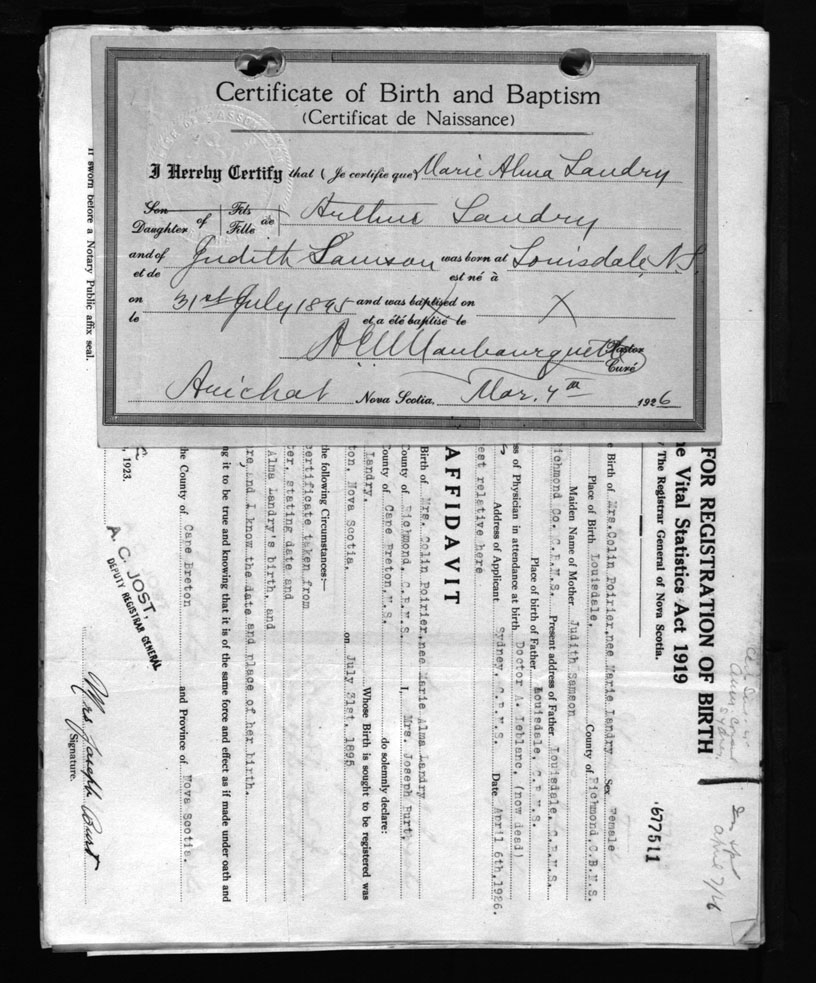 Certificate of Birth and Baptism
(Certificat de Naissance)
I Hereby Certify that (Je certifie que) Marie Alma Landry
Son Daughter of Fils Fille de Arthur Landry
and of et de Judith Samson was born at est né à Louisdale, N.S.
on le 31st July 1895 and was baptised on et a été baptisé le X
Pastor
Curé
Arichat Nova Scotia, Mar. 4th 1926
If sworn before a Notary Public affix seal.
FOR REGISTRATION OF BIRTH
Vital Statistics Act 1919
The Registrar General of Nova Scotia.
677511
Birth of Mrs. Colin Poirier, nee Marie Landry Sex Female
Place of Birth Louisdale, County of Richmond, C.B.N.S.
Maiden Name of Mother Judith Samson
Richmond Co. C.B.N.S. Present address of Father Louisdale, C.B.N.S.
Place of birth of Father Louisdale, C.B.N.S.
of Physician in attendance at birth Doctor A. Leblanc, (now dead)
Address of Applicant Sydney, C.B.N.S. Date April 6th, 1926.
relative here
AFFIDAVIT
Birth of Mrs. Colin Poirier, nee Marie Alma Landry
County of Richmond, C.B.N.S. I, Mrs. Joseph Burt
County of Cape Breton, N.S. do solemnly declare:
Landry, Whose Birth is sought to be registered was
Nova Scotia, on July 31st, 1895
the following Circumstances:—
certificate taken from
stating date and
Alma Landry's birth, and
and I know the date and place of her birth.
it to be true and knowing that it is of the same force and effect as if made under oath and
the County of Cape Breton and Province of Nova Scotia.
1923.
A. C. JOST,
DEPUTY REGISTRAR GENERAL
Mrs Joseph Burt
Signature.